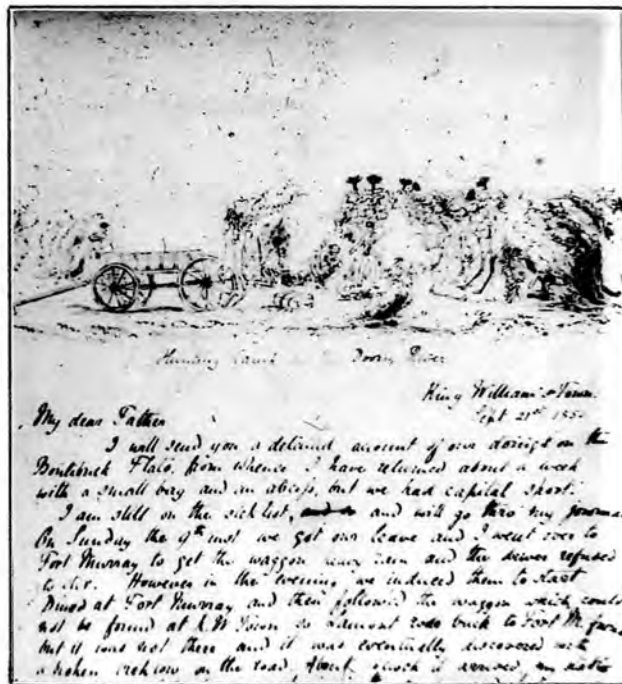 Hunting Camp Doorn River
King William's Town.
Sept 21st 185
My dear Father
I will send you a detailed account of our doings on the
Bontebuck Flats, from whence I have returned about a week
with a small bag and an abcess, but we had capital sport.
I am still on the sick list, and will go thro my journal
On Sunday the 9th inst we got our leave and I went over to
Fort Murray to get the waggon heavy rain and the driver refused
to stir. However in the evening we induced them to start
Dined at Fort Murray and then followed the waggon which could
not be found at K.W Town so Lamont rode back to Fort M.
but it was not there and it was eventually discovered with
a broken on the road, About o'clock it arrived, my